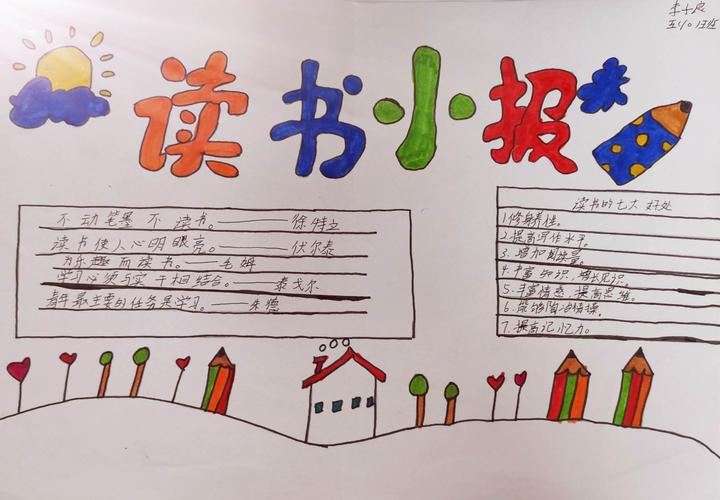 李
五(1)班
读书小报
不动笔墨不读书。——徐特立
读书使人心明眼亮。——伏尔泰
为乐趣而读书。——毛姆
学习必须与实干相结合。——泰戈尔
青年最主要的任务是学习。——朱德
读书的七大好处
1.修身养性。
2.提高写作水平。
3.增加
4.丰富知识,增长见识。
5.丰富情感,提高思维。
6.能够陶冶情操。
7.提高记忆力。